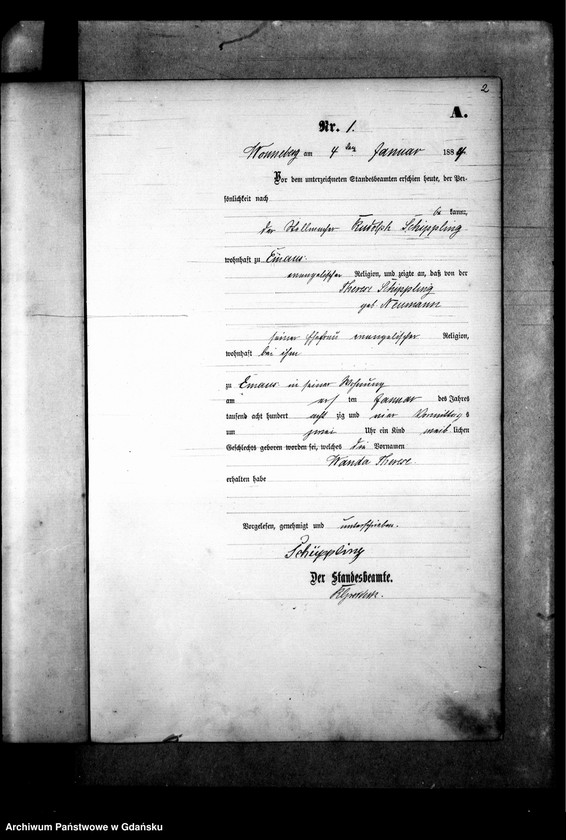 2
A.
Nr. 1.
Wonneberg am 4 ten Januar 1884.
Vor dem unterzeichneten Standesbeamten erschien heute, der Per-
sönlichkeit nach
be kannt,
der Stellmacher Rudolph Schippling
wohnhaft zu Emaus.
evangelischer Religion, und zeigte an, daß von der
Therese Schippling
geb Neumann
seiner Ehefrau evangelischer Religion,
wohnhaft bei ihm
zu Emaus in seiner Wohnung
am ten Januar des Jahres
tausend acht hundert acht zig und vier Vormittags
um zwei Uhr ein Kind weib lichen
Geschlechts geboren worden sei, welches die Vornamen
Wanda Therese.
erhalten habe
Vorgelesen, genehmigt und unterschrieben.
Schippling
Der Standesbeamte.
Archiwum Państwowe w Gdańsku